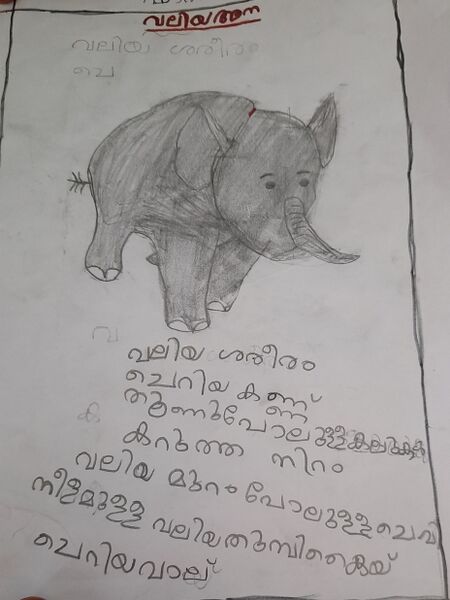 വലിയആന
വലിയ ശരീരം
ചെ
വ
വലിയ ശരീരം
ചെറിയ കണ്ണ്
തൂണുപോലുള്ളകലുകൾ
ക
കറുത്ത നിറം
വലിയ മുറംപോലുള്ളചെവി
നീളമുള്ള വലിയതുമ്പികൈയ്
ചെറിയവാല്